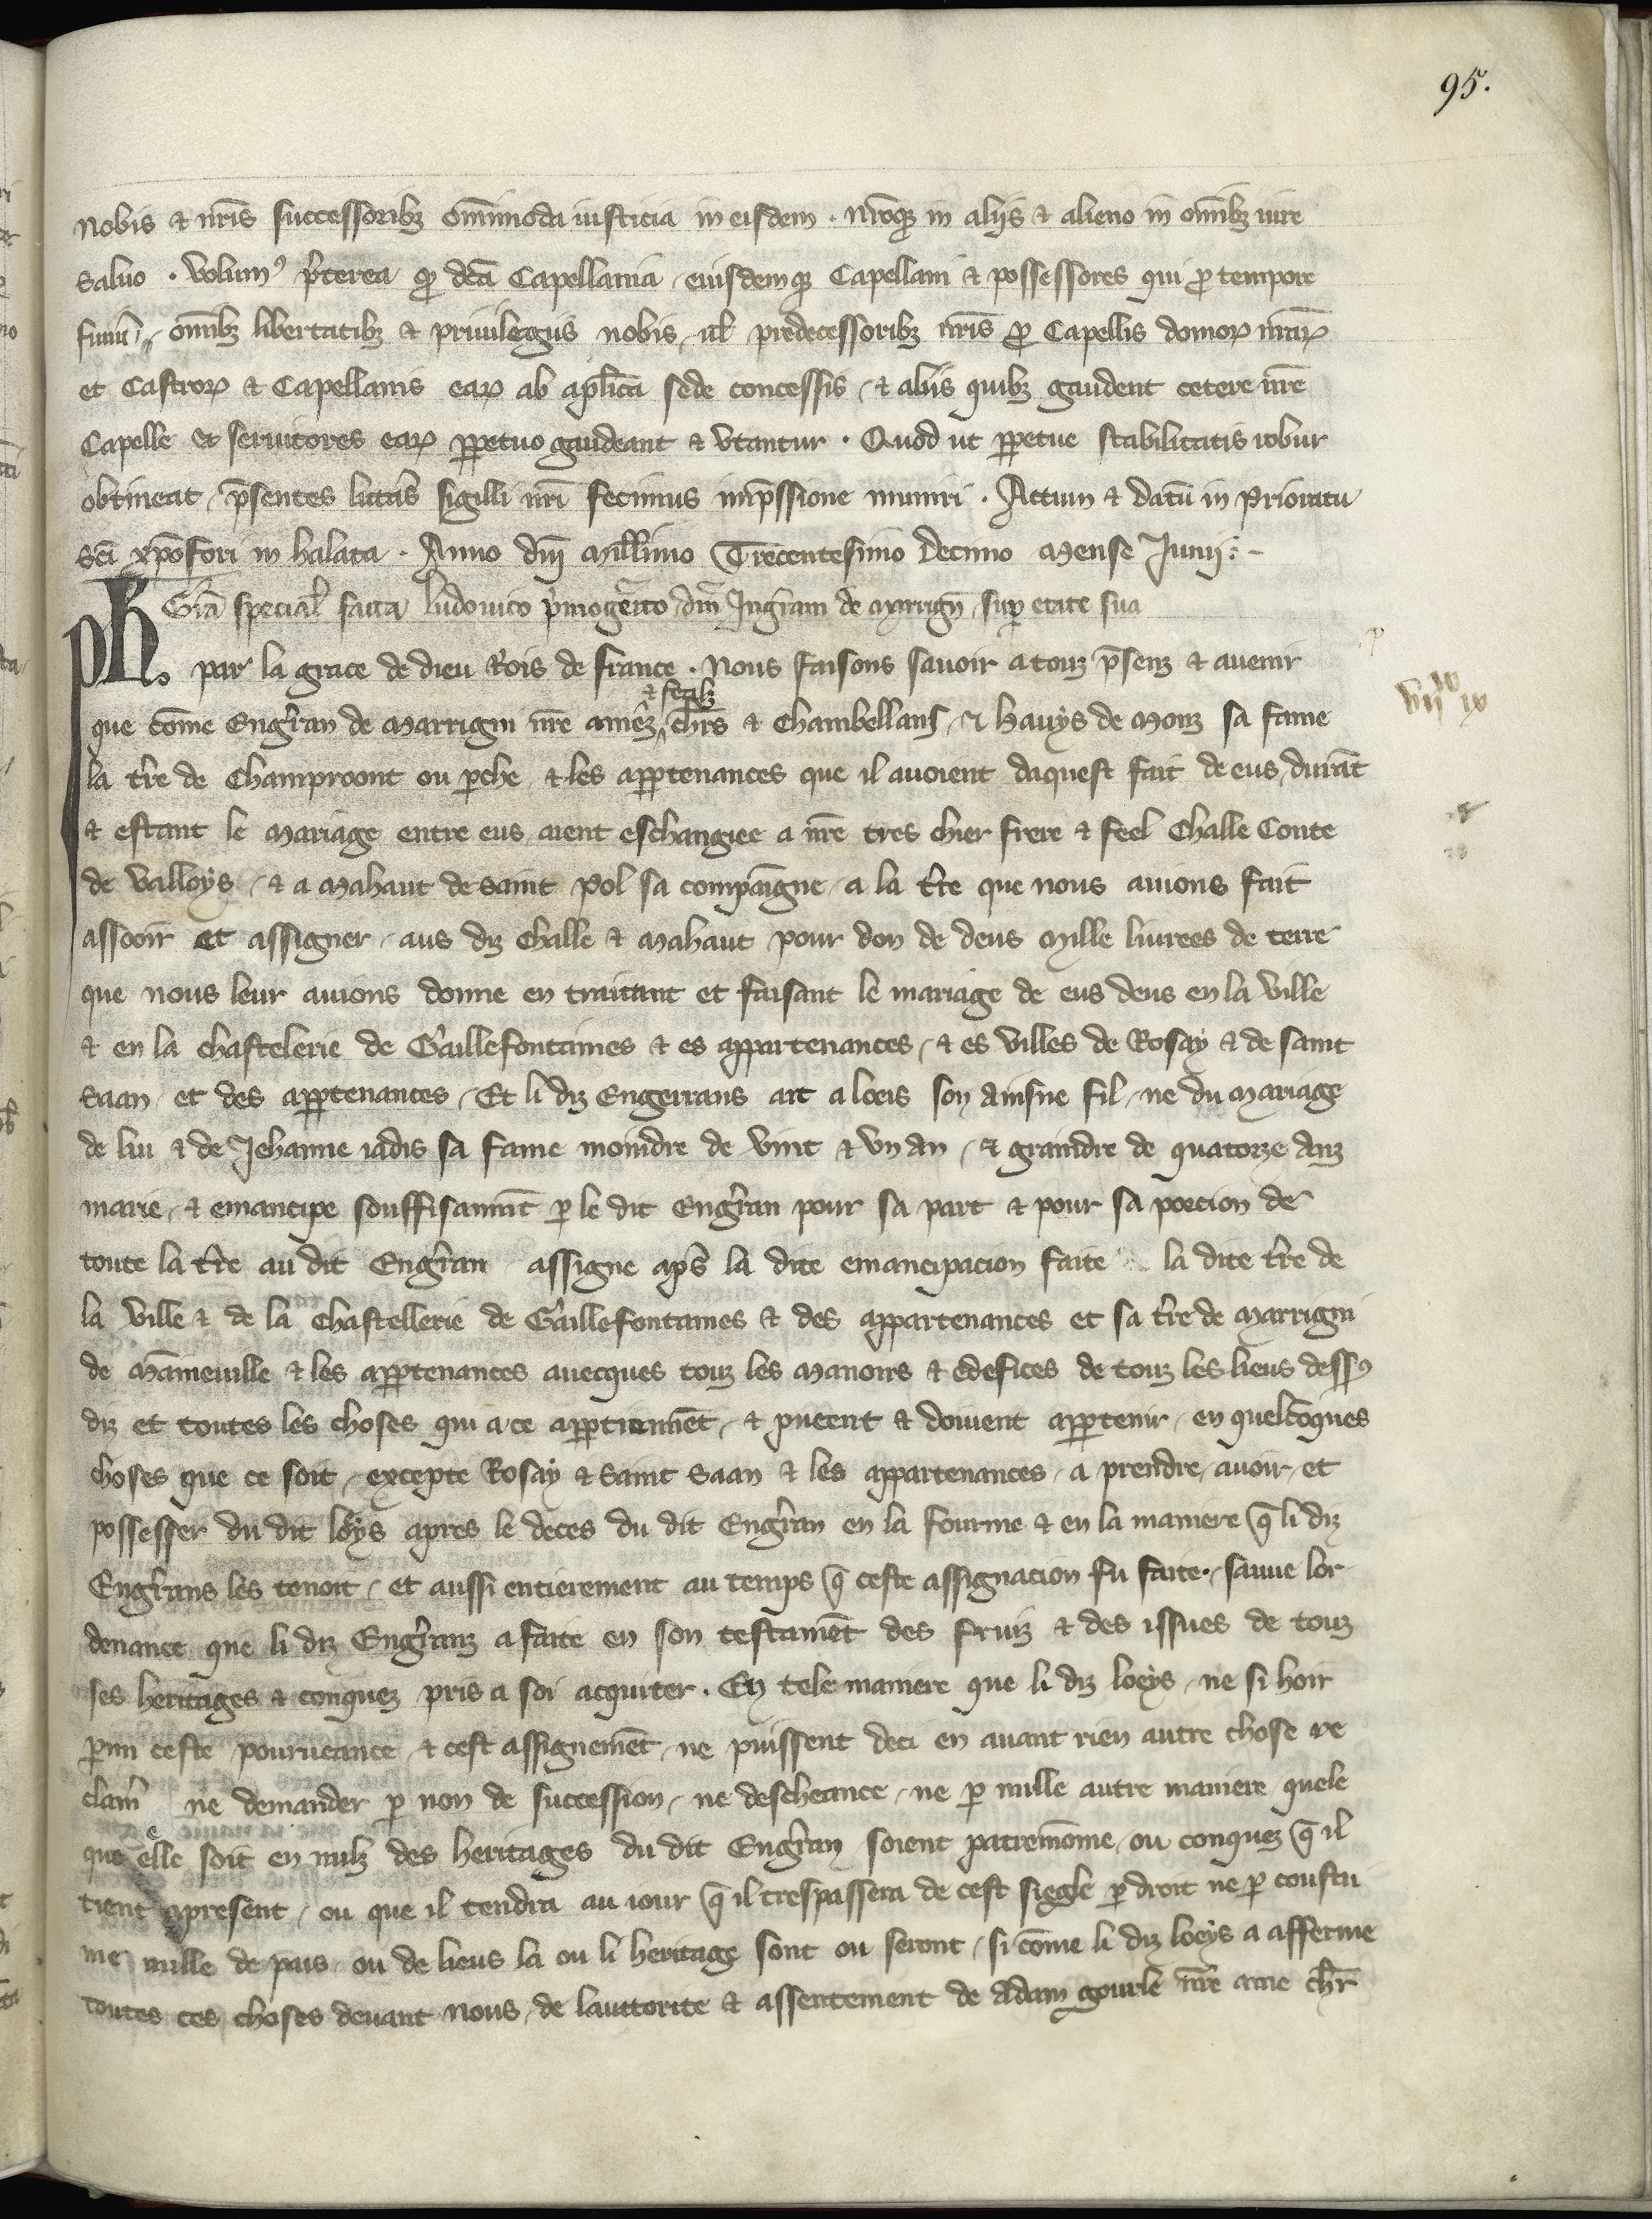 95.
nobis & nr̄is successoribꝫ om̄imoda iusticia in eisdem . nr̄oqꝫ in aliis & alieno in om̄ibꝫ iure
saluo . Volumꝰ p̄terea qꝫ dc̄a Capellania , eiusdemqꝫ Capellani & possessores qui ꝓ tempore
fuerīt , om̄ibꝫ libertatibꝫ & priuilegiis nobis , ul̄ predecessoribꝫ nr̄is ꝓ Capellis domoꝝ nr̄aꝝ
et Castroꝝ & Capellanis eaꝝ ab apl̄ica sede concessis , & aliis quibꝫ gaudent cetere nr̄e
Capelle et seruitores eaꝝ ꝑpetuo gaudeant & vtantur . Quod ut ꝑpetue stabilitatis robur
obtineat , p̄sentes litt̄as sigilli nr̄i fecimus imp̄ssione muniri . Actum & datū in Prioratu
sc̄i xp̄ofori in halata . Anno dn̄i millīmo Trecentesimo decimo mense Junij :-
Gr̄a special̄ facta ludouico p̄mogenito dn̄i Ingr̄ani de marrign̄ , suꝑ etate sua
Ph. par la grace de dieu Rois de france . Nous faisons sauoir a touz p̄senz & auenir
que cōme Engr̄an de Marrigni nr̄e amez & fealz chr̄s & Chambellans , & Hauys de Monz sa fame
la tr̄e de Champroont ou ꝑche , & les apꝑtenances que il auoient daquest fait de eus , durāt
& estant le mariage entre eus , aient eschangiee a nr̄e tres chier frere & feel Challe Conte
de Valloys , & a Mahaut de saint Pol sa compaigne , a la tr̄e que nous auions fait
asseoir et assigner , aus diz Challe & Mahaut pour don de deus mille liurees de terre
que nous leur auions donne en traitant et faisant le mariage de eus deus en la ville
& en la chastelerie de Gaillefontaines & es appartenances , & es villes de Rosay & de saint
Saan et des apꝑtenances , Et li diz Engerrans ait a loeis son ainsne fil , ne du mariage
de lui & de Jehanne iadis sa fame moindre de vint & vn an , & graindre de quatorze anz
marie , & emancipe souffisanm̄t ꝑ le dit Engr̄an pour sa part & pour sa porcion de
toute la tr̄e au dit Engr̄an assigne ap̄s la dite emancipacion faite la dite tr̄e de
la ville & de la Chastellerie de Gaillefontaines & des appartenances et sa tr̄e de Marrigni
de Mānieuille & les apꝑtenances auecques touz les manoirs & edefices de touz les lieus dessꝰ
diz et toutes les choses qui a ce apꝑtiennēt , & pueent & doiuent apꝑtenir , en quelcōques
choses que ce soit , excepte Rosay & Saint Saan & les appartenances , a prendre , auoir , et
possesser du dit loys apres le deces du dit Engr̄an en la fourme & en la maniere q̄ li diz
Engr̄ans les tenoit , et aussi entierement au temps q̄ ceste assignacion fu faite . sauue lor
denance que li diz Engr̄anz a faite en son testamēt des fruiz & des issues de touz
ses heritages & conquez pris a soi acquiter . En tele maniere que li diz loeys , ne si hoir
ꝑmi ceste pourueance , & cest assignemēt , ne puissent deci en auant rien autre chose re
clam̄ ne demander ꝑ non de succession , ne descheance , ne ꝑ nulle autre maniere quele
que elle soit en nulz des heritages du dit Engr̄an soient patremoīne , ou conquez q̄ il
tient apresent , ou que il tendra au iour q̄ il trespassera de cest siegle ꝑ droit ne ꝑ coustu
me nulle de pais ou de lieus la ou li heritage sont ou seront , si cōme li diz loeys a afferme
toutes ces choses deuant nous , de lauctorite & assentement de Adam gourle nr̄e ame chr̄